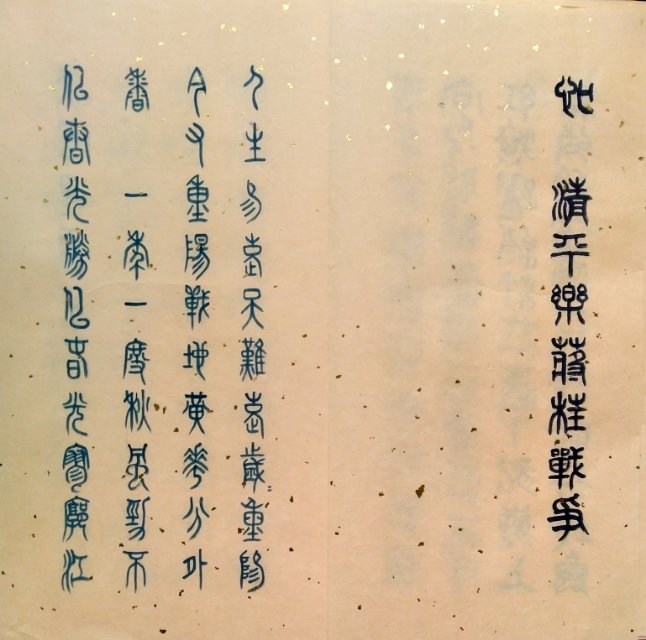 清平樂蔣桂戰爭
人生易老天難老歲〻重陽
今又重陽戰地黃花分外
香 一年一度秋風勁不
似春光勝似春光寥廓江